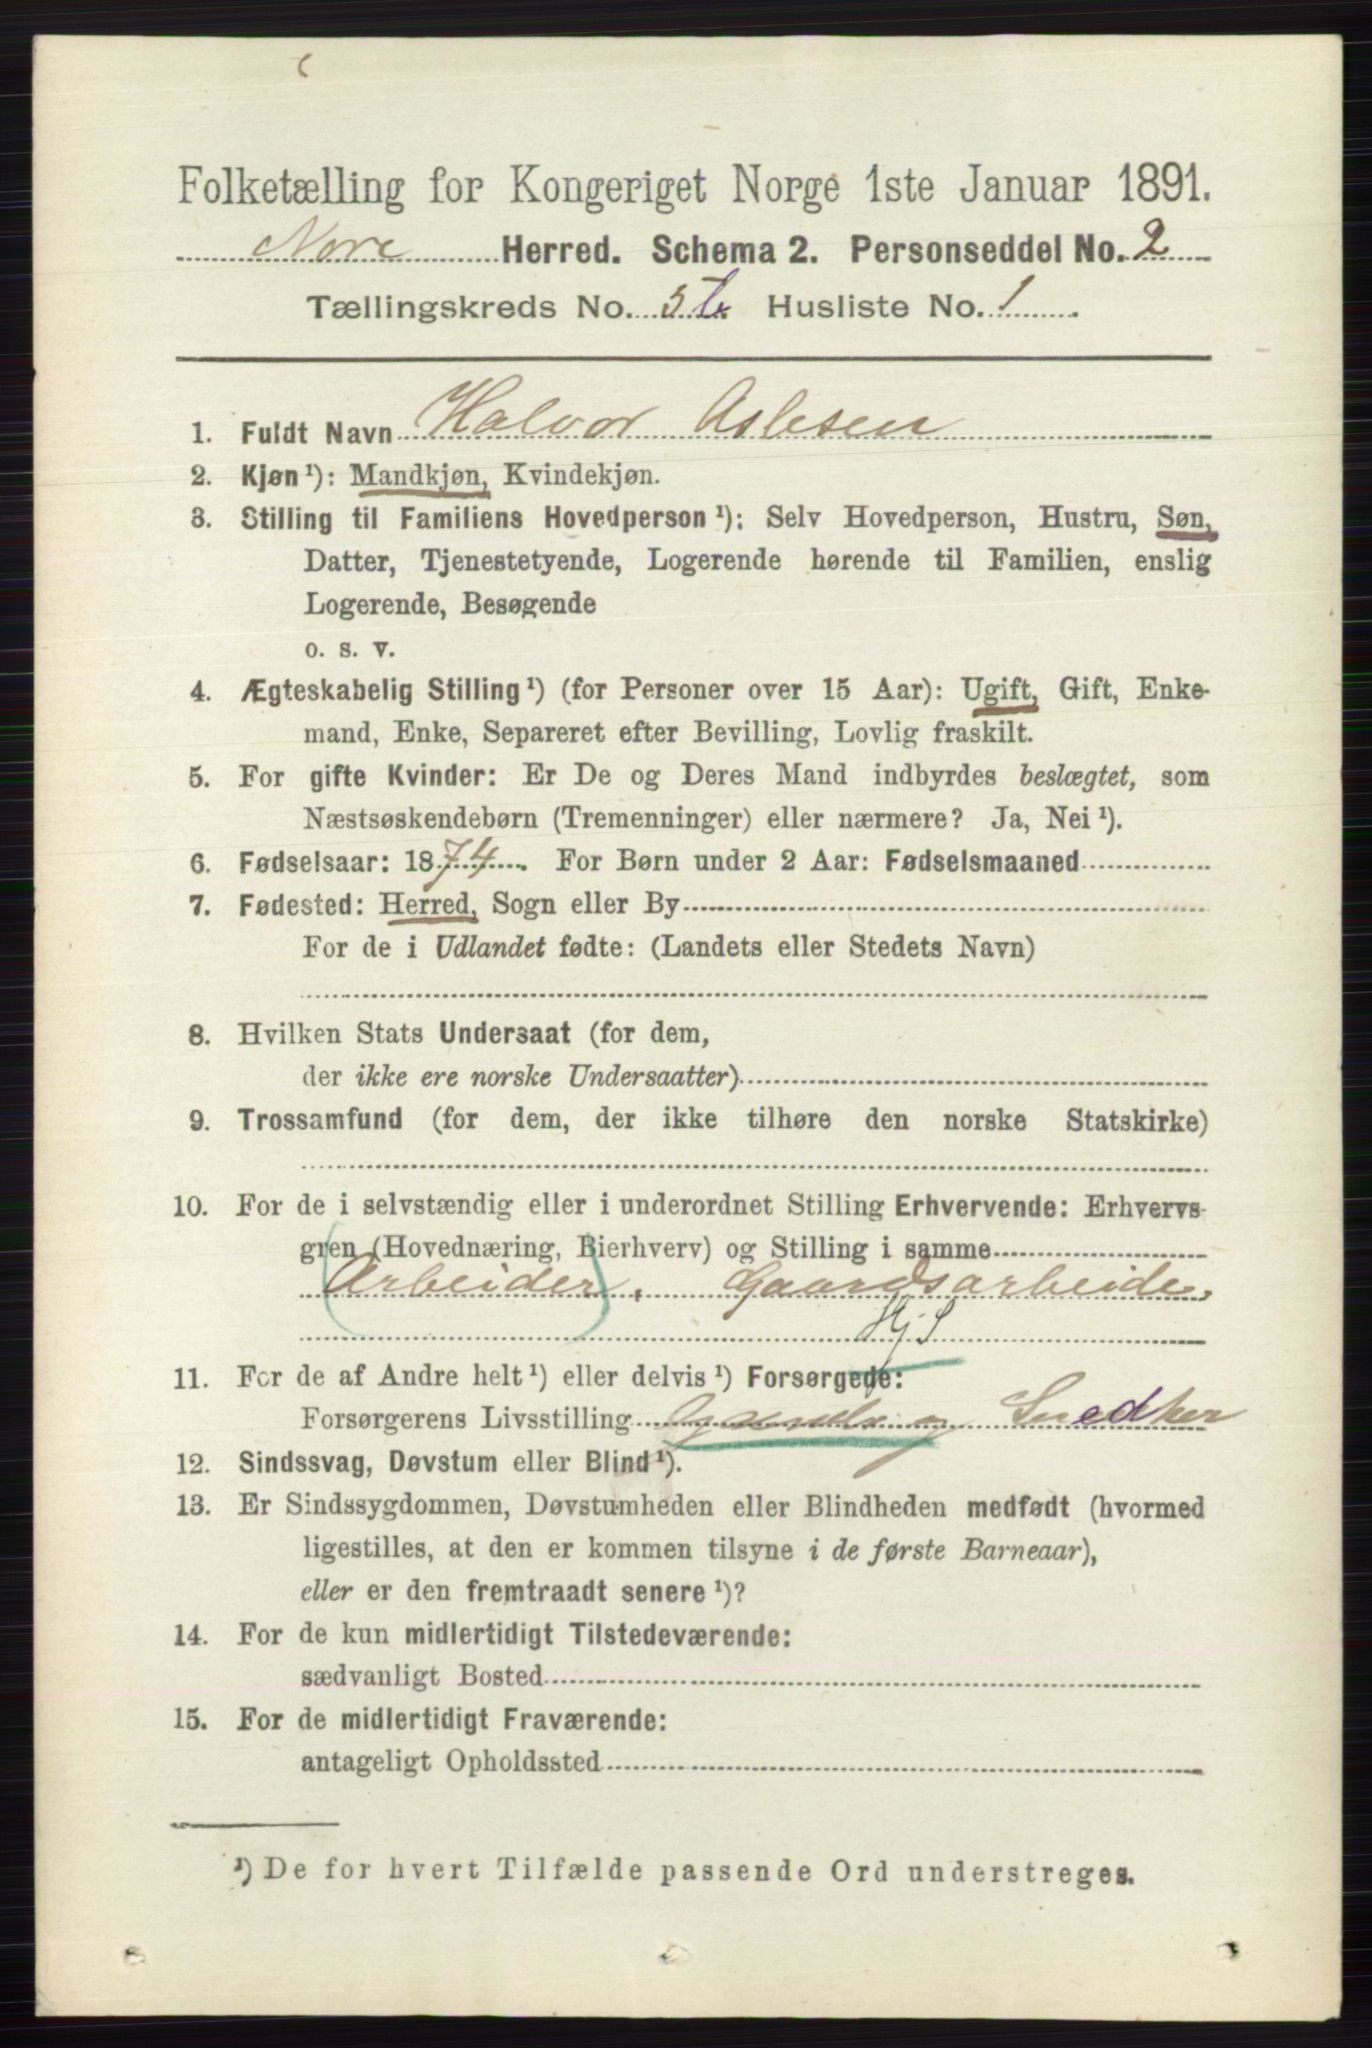 Folketælling for Kongeriget Norge 1ste Januar 1891.
Nore Herred. Schema 2. Personseddel No. 2
Tællingskreds No. 5 b. Husliste No. 1.
1. Fuldt Navn Halvor Aslesen
2. Kjøn¹): Mandkjøn, Kvindekjøn.
3. Stilling til Familiens Hovedperson¹): Selv Hovedperson, Hustru, Søn,
Datter, Tjenestetyende, Logerende hørende til Familien, enslig
Logerende, Besøgende
o. s. v.
4. Ægteskabelig Stilling¹) (for Personer over 15 Aar): Ugift, Gift, Enke-
mand, Enke, Separeret efter Bevilling, Lovlig fraskilt.
5. For gifte Kvinder: Er De og Deres Mand indbyrdes beslægtet, som
Næstsøskendebørn (Tremenninger) eller nærmere? Ja, Nei¹).
6. Fødselsaar: 1874. For Børn under 2 Aar: Fødselsmaaned
7. Fødested: Herred, Sogn eller By
For de i Udlandet fødte: (Landets eller Stedets Navn)
8. Hvilken Stats Undersaat (for dem,
der ikke ere norske Undersaatter)
9. Trossamfund (for dem, der ikke tilhøre den norske Statskirke)
10. For de i selvstændig eller i underordnet Stilling Erhvervende: Erhvervs-
gren (Hovednæring, Bierhverv) og Stilling i samme
(Arbeider), Gaardsarbeide,
Hj S
11. For de af Andre helt¹) eller delvis¹) Forsørgede:
Forsørgerens Livsstilling og Snedker
12. Sindssvag, Døvstum eller Blind¹).
13. Er Sindssygdommen, Døvstumheden eller Blindheden medfødt (hvormed
ligestilles, at den er kommen tilsyne i de første Barneaar),
eller er den fremtraadt senere¹)?
14. For de kun midlertidigt Tilstedeværende:
sædvanligt Bosted
15. For de midlertidigt Fraværende:
antageligt Opholdssted
¹) De for hvert Tilfælde passende Ord understreges.